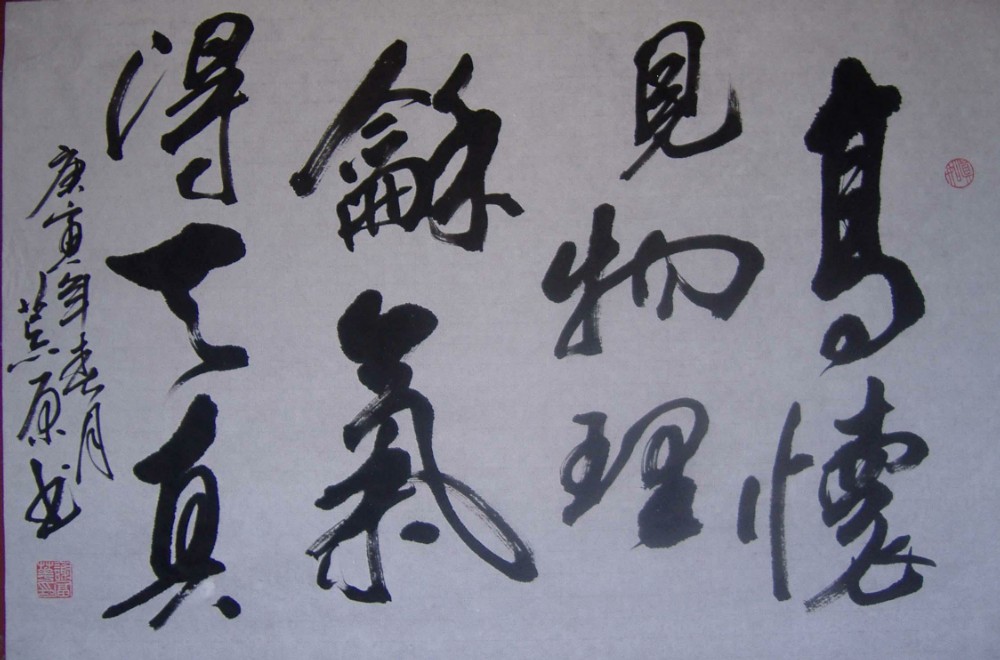 高懷
見物理
龢氣
得天真
庚寅年春月
荒原書